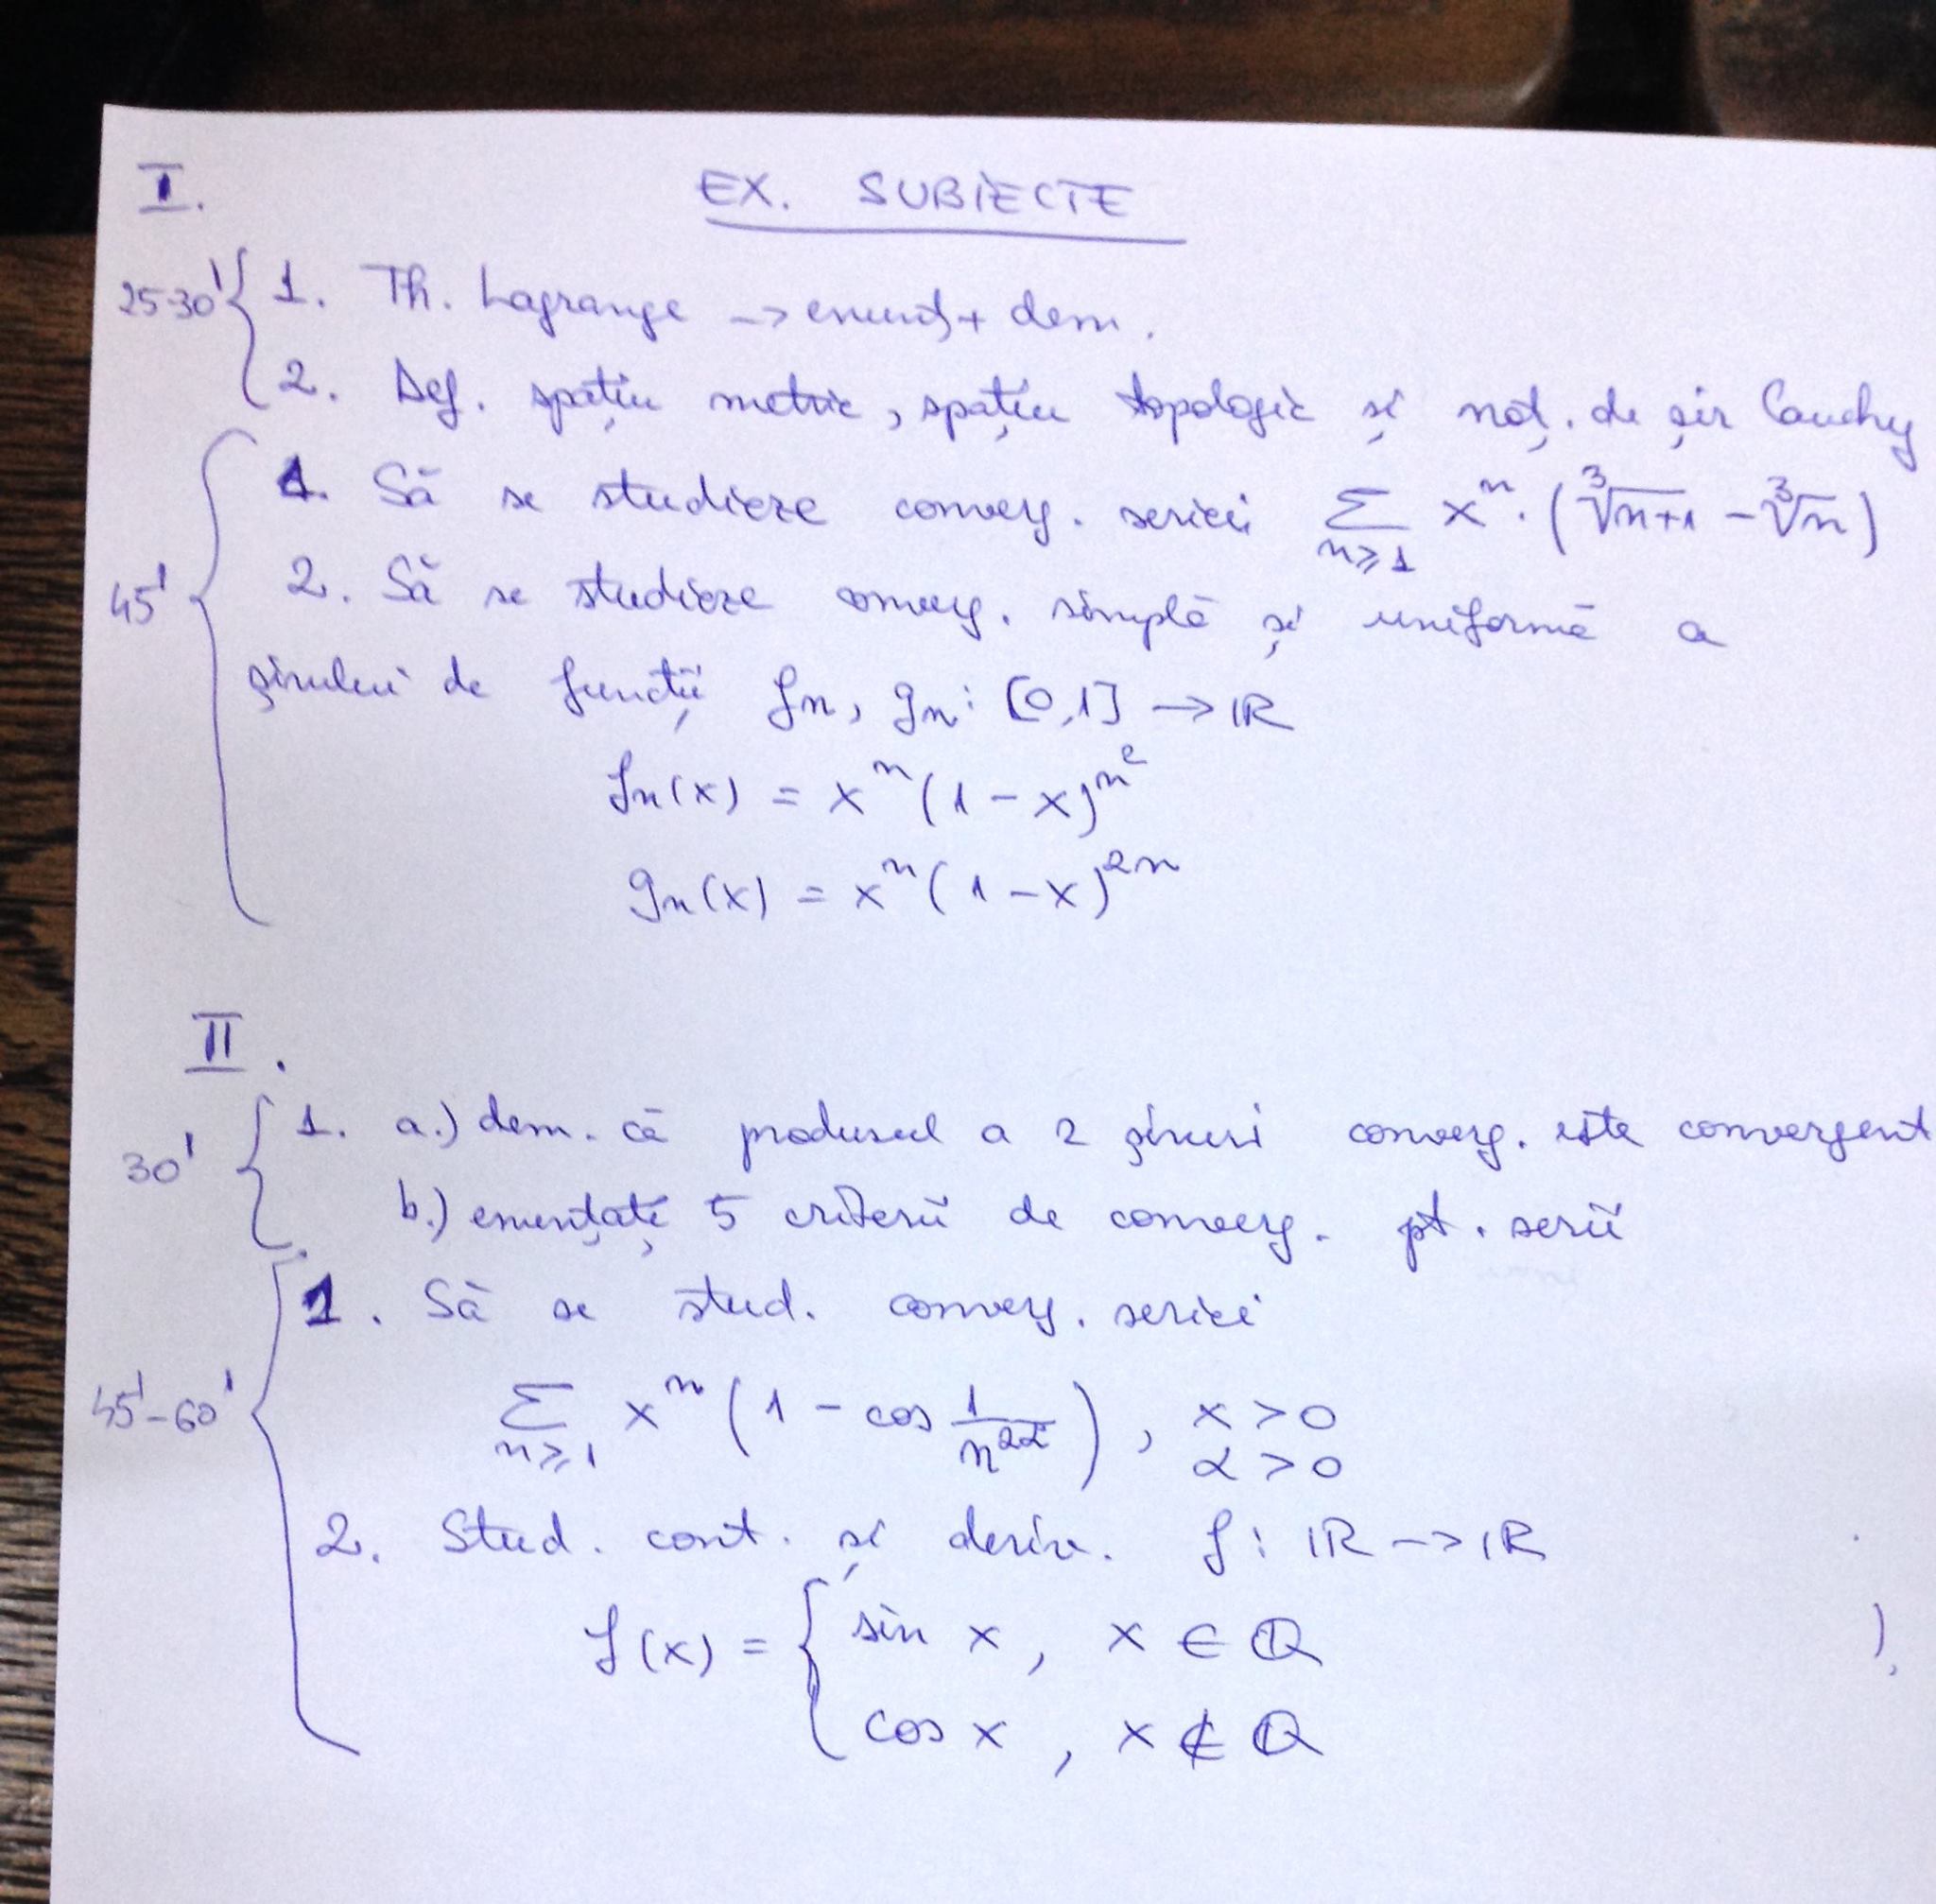 I.
EX. SUBIECTE
25-30' 1. Th. Lagrange → enunț + dem.
2. Def. spațiu metric, spațiu topologic și noț. de șir Cauchy
1. Să se studieze converg. seriei ∑_{n≥1} x^n · (∛(n+1) - ∛n)
45' 2. Să se studieze converg. simplă și uniformă a
șirului de funcții fn, gn: [0,1] → ℝ
fn(x) = x^n (1-x)^{n^2}
gn(x) = x^n (1-x)^{2n}
II.
30' 1. a.) dem. că produsul a 2 șiruri converg. este convergent
b.) enunțați 5 criterii de converg. pt. serii
1. Să se stud. converg. seriei
45'-60' ∑_{n≥1} x^n (1 - cos 1/n^{2α}), x > 0
α > 0
2. Stud. cont. și deriv. f: ℝ → ℝ
f(x) = { sin x, x ∈ ℚ
cos x, x ∉ ℚ